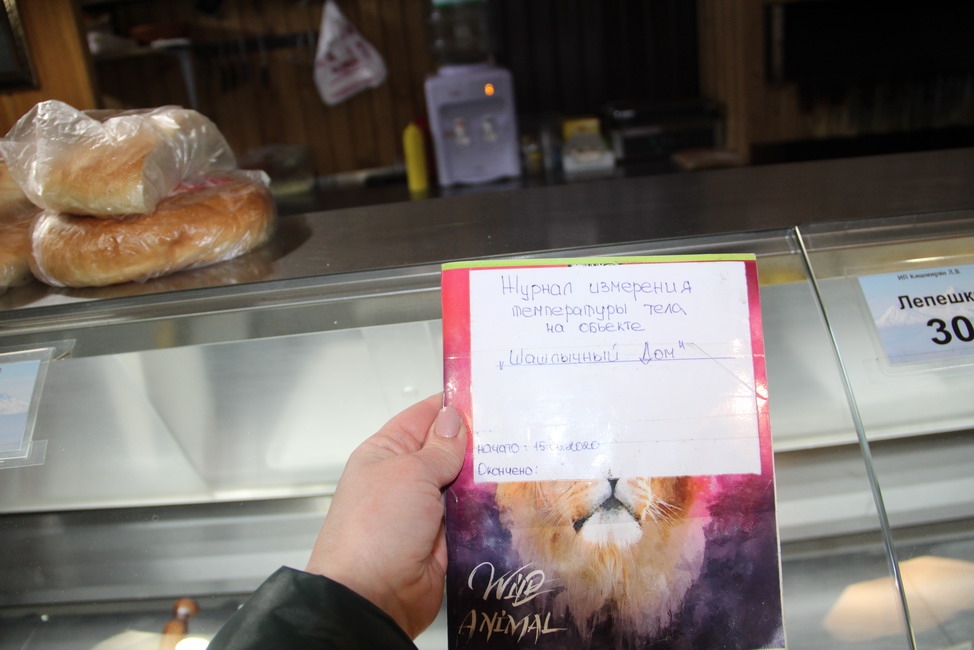 Журнал измерения
температуры тела
на объекте
„Шашлычный Дом"
начато:
Окончено:
WILD
ANIMAL
Лепешк
30